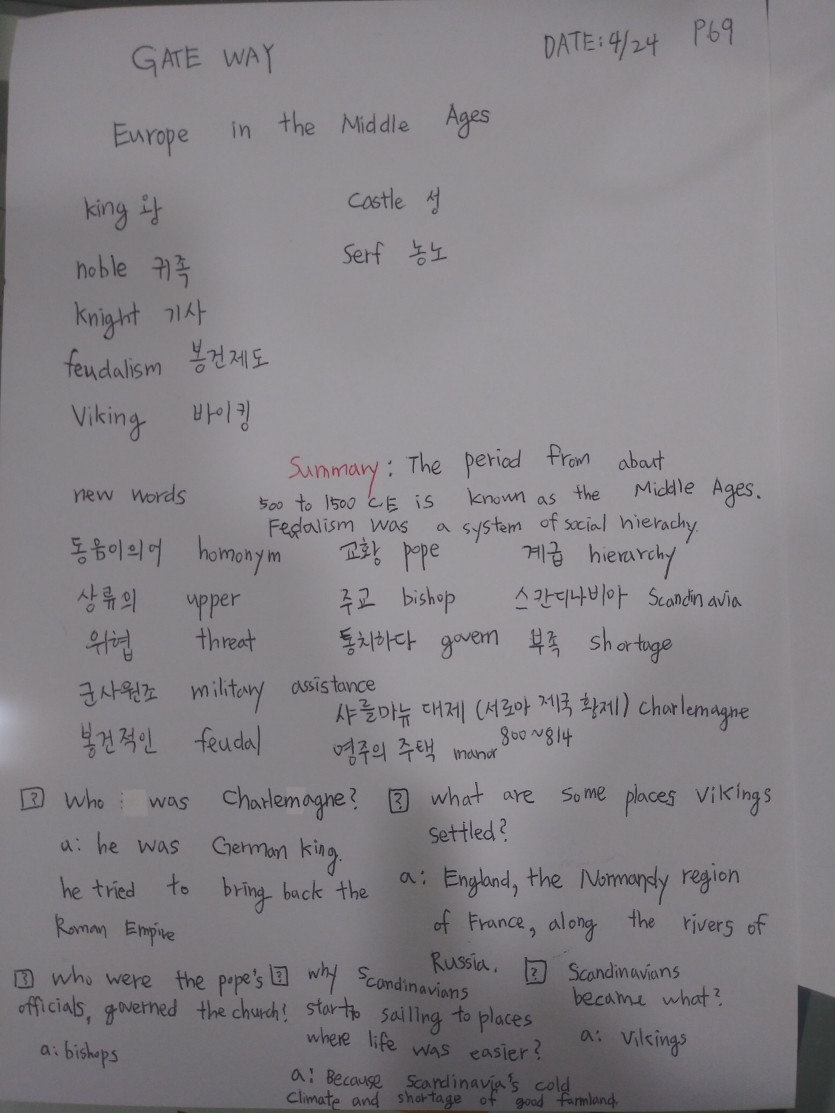 GATE WAY
DATE: 4/24 P69
Europe in the Middle Ages
king 왕
castle 성
noble 귀족
serf 농노
knight 기사
feudalism 봉건제도
Viking 바이킹
Summary: The period from about
new words
500 to 1500 CE is known as the Middle Ages.
Fedalism was a system of social hierachy.
동음이의어 homonym
교황 pope
계급 hierarchy
상류의 upper
주교 bishop
스칸디나비아 Scandinavia
위협 threat
통치하다 govern
부족 shortage
군사원조 military assistance
샤를마뉴 대제 (서로마 제국 황제) charlemagne
800~814
봉건적인 feudal
영주의 주택 manor
? Who was Charlemagne?
a: he was German king.
he tried to bring back the
Roman Empire
? what are some places Vikings
settled?
a: England, the Normandy region
of France, along the rivers of
Russia.
? who were the pope's
officials, governed the church?
a: bishops
? why Scandinavians
start to sailing to places
where life was easier?
a: Because Scandinavia's cold
climate and shortage of good farmland
? Scandinavians
became what?
a: Vikings